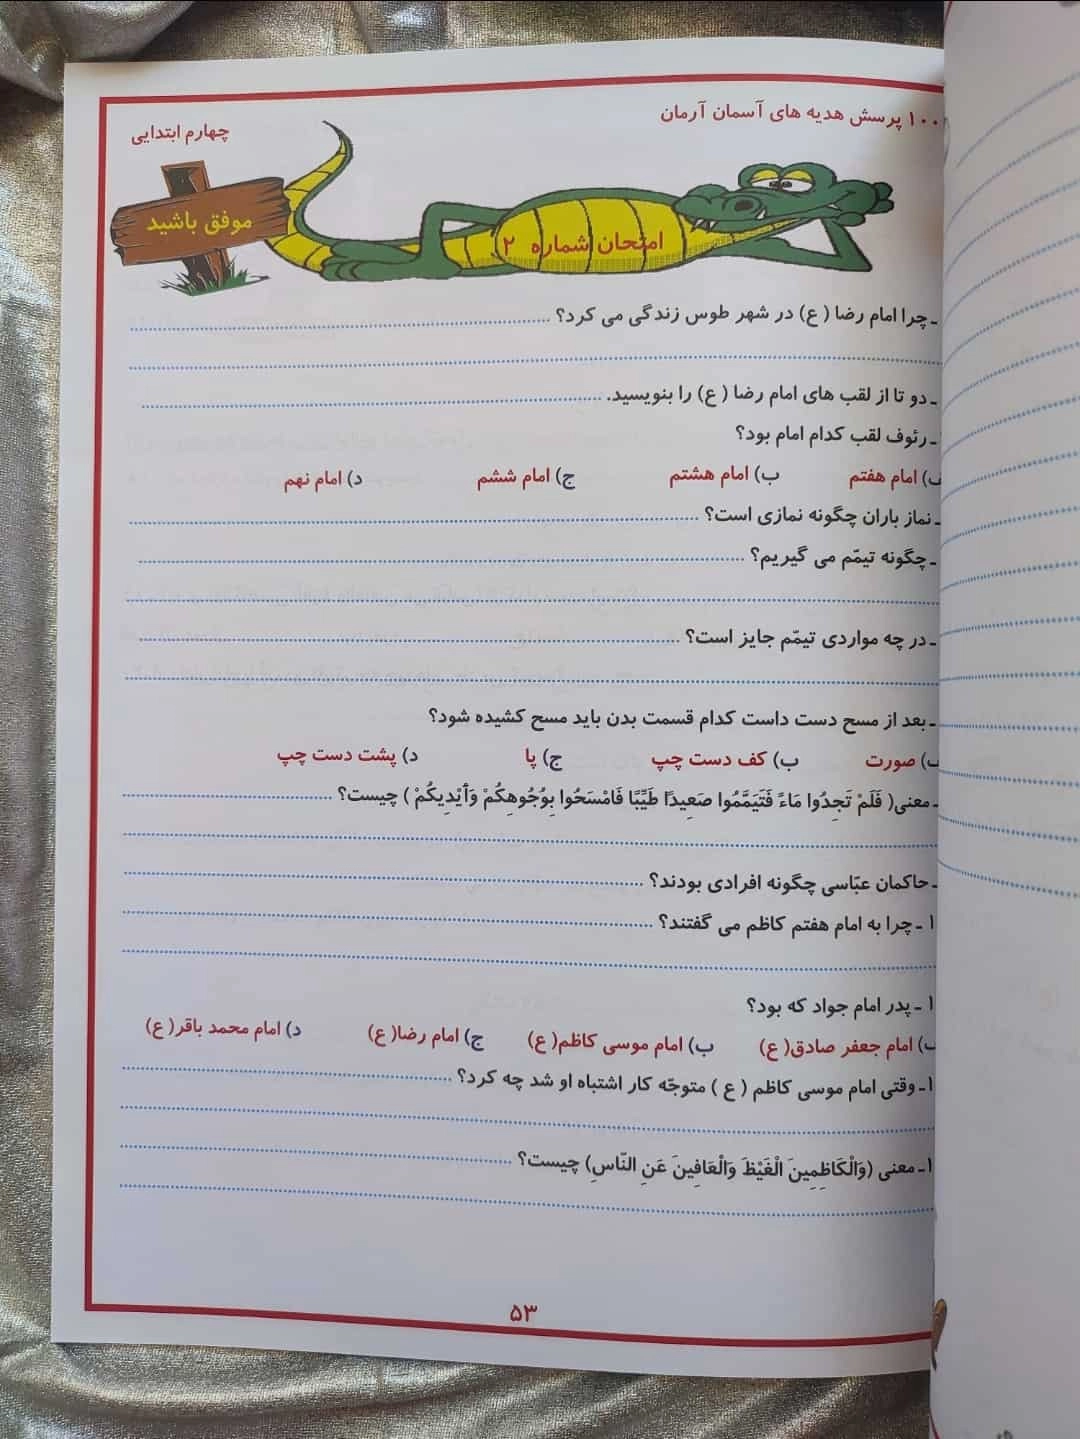 ۱۰۰ پرسش هدیه های آسمان آرمان
چهارم ابتدایی
موفق باشید
امتحان شماره ۲
ـ چرا امام رضا ( ع) در شهر طوس زندگی می کرد؟
ـ دو تا از لقب های امام رضا ( ع) را بنویسید.
ـ رئوف لقب کدام امام بود؟
) امام هفتم ب) امام هشتم ج) امام ششم د) امام نهم
ـ نماز باران چگونه نمازی است؟
ـ چگونه تیمّم می گیریم؟
ـ در چه مواردی تیمّم جایز است؟
ـ بعد از مسح دست داست کدام قسمت بدن باید مسح کشیده شود؟
) صورت ب) کف دست چپ ج) پا د) پشت دست چپ
ـ معنی( فَلَمْ تَجِدُوا مَاءً فَتَيَمَّمُوا صَعِيدًا طَيِّبًا فَامْسَحُوا بِوُجُوهِكُمْ وَأَيْدِيكُمْ ) چیست؟
ـ حاکمان عبّاسی چگونه افرادی بودند؟
۱ ـ چرا به امام هفتم کاظم می گفتند؟
۱ ـ پدر امام جواد که بود؟
) امام جعفر صادق( ع) ب) امام موسی کاظم( ع) ج) امام رضا( ع) د) امام محمد باقر( ع)
۱ـ وقتی امام موسی کاظم ( ع ) متوجّه کار اشتباه او شد چه کرد؟
۱ـ معنی (وَالْكَاظِمِينَ الْغَيْظَ وَالْعَافِينَ عَنِ النَّاسِ) چیست؟
۵۳